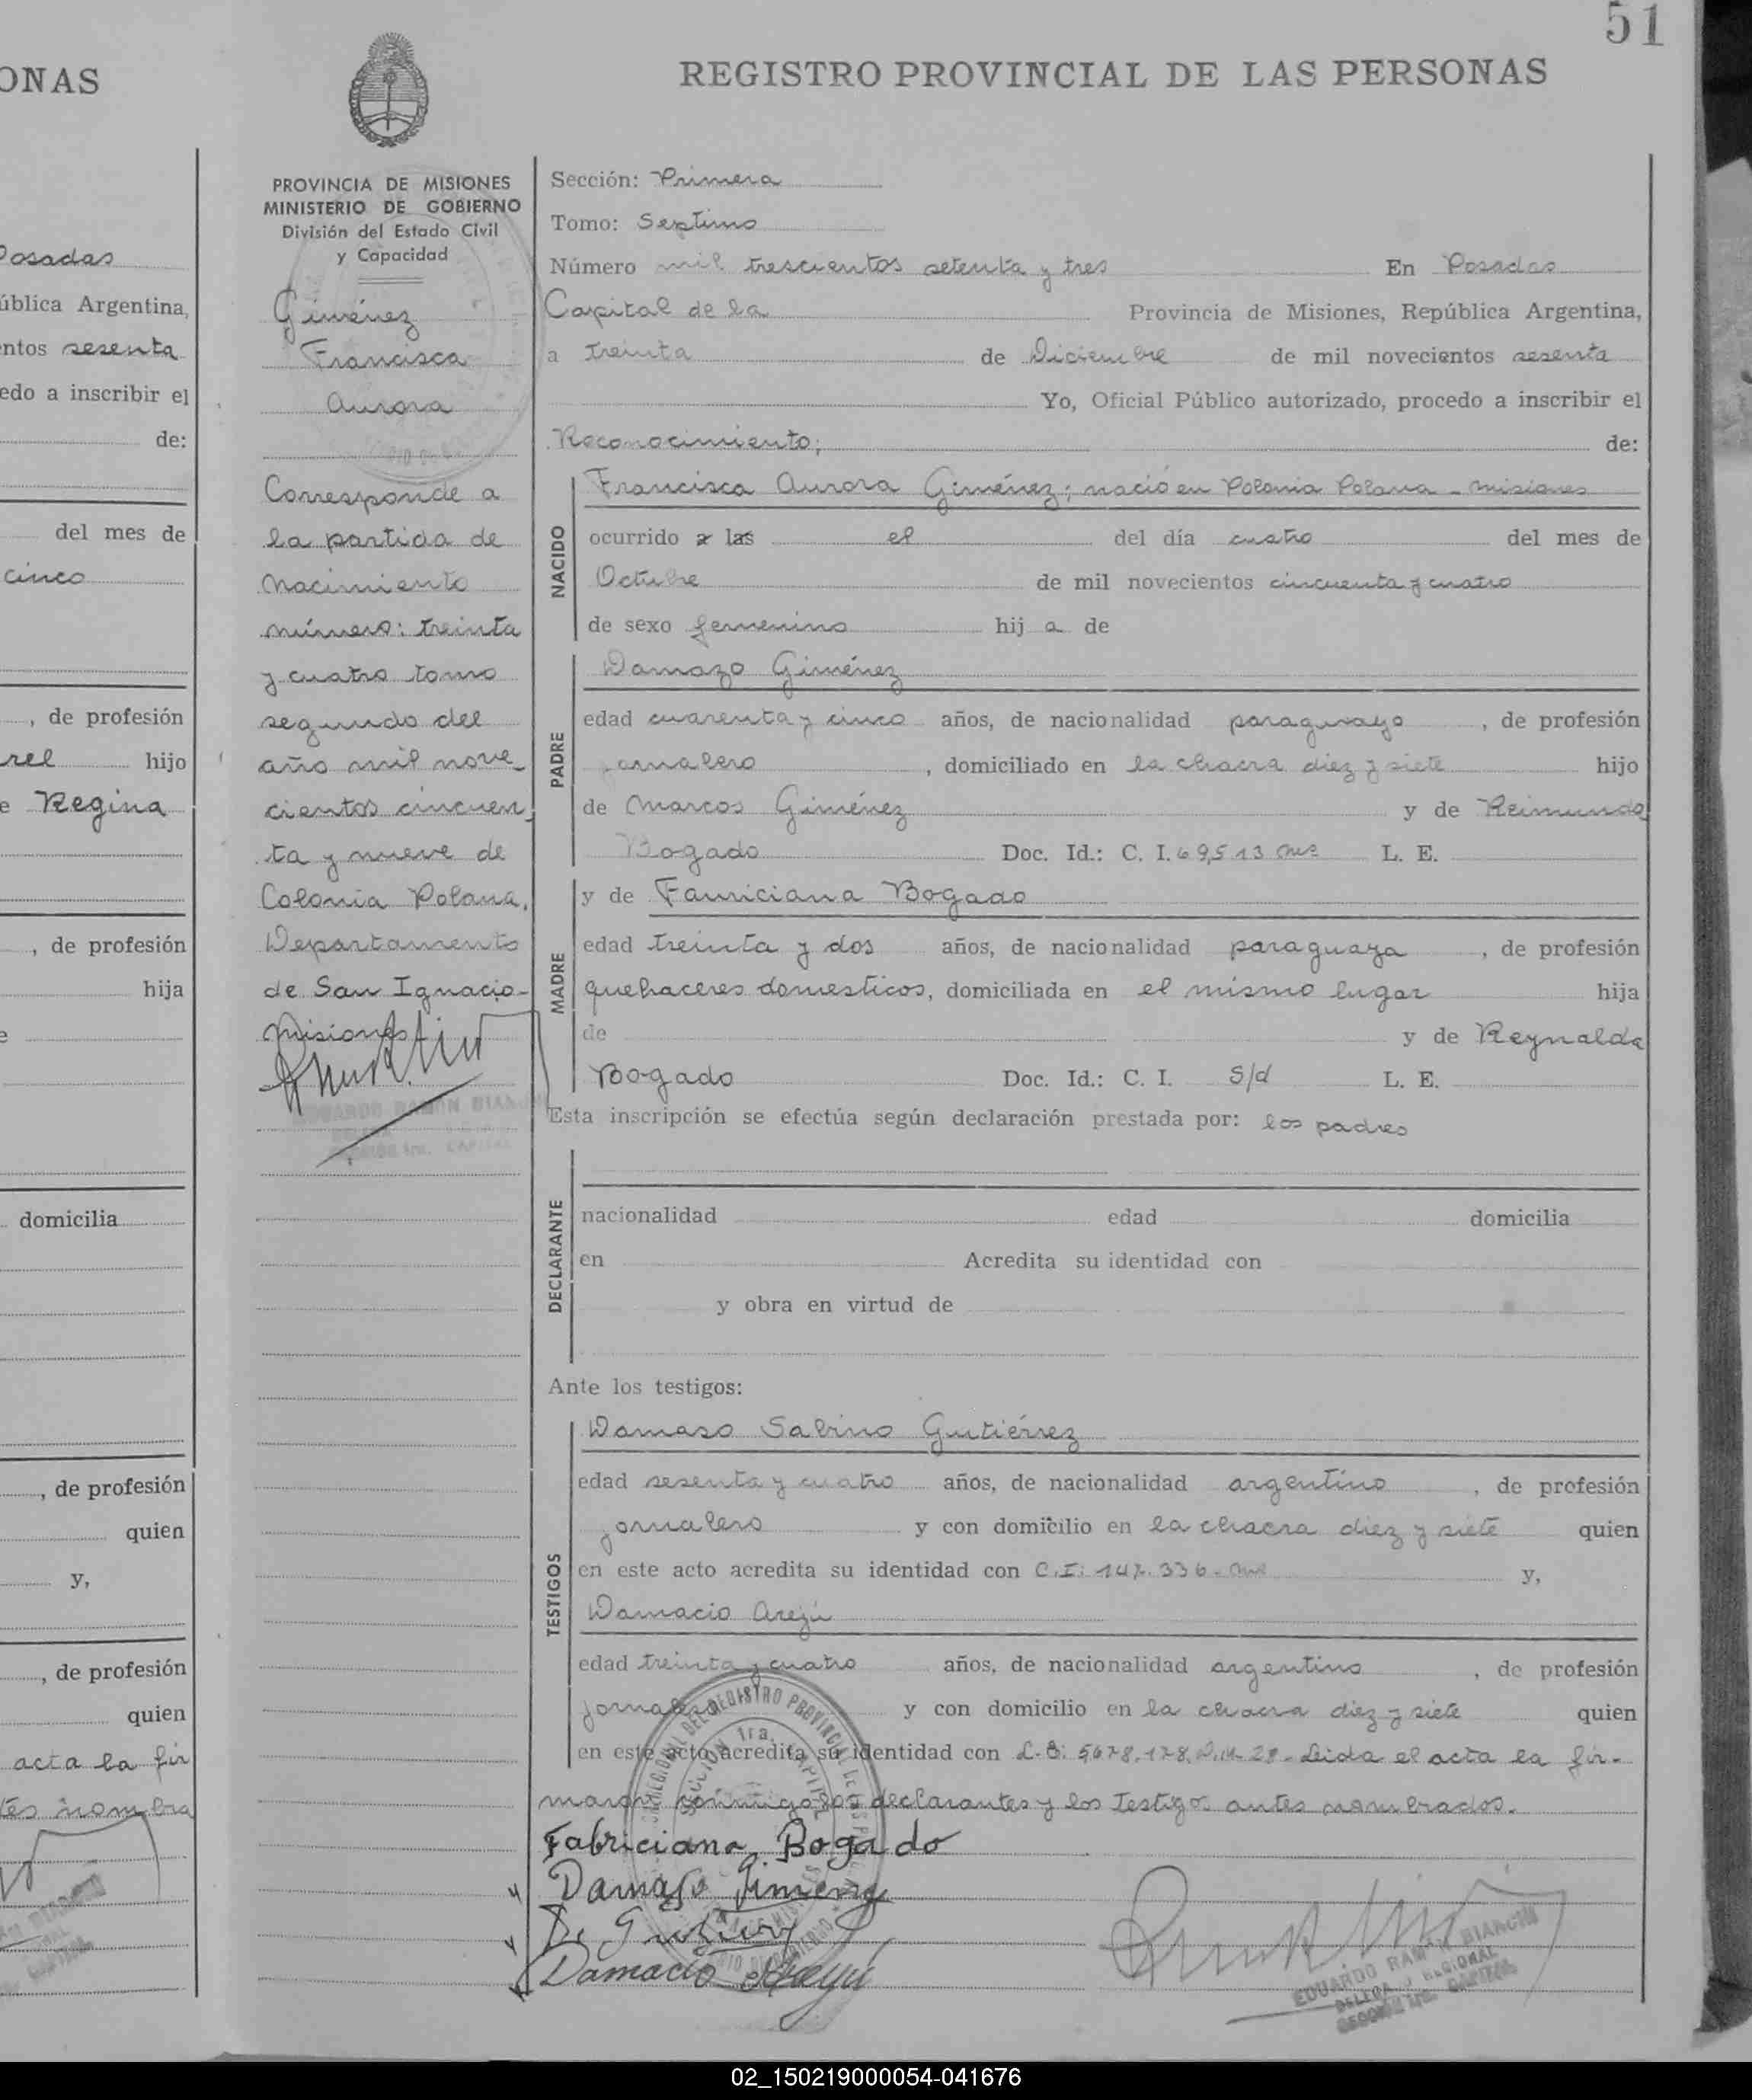 51
ONAS
REGISTRO PROVINCIAL DE LAS PERSONAS
PROVINCIA DE MISIONES
MINISTERIO DE GOBIERNO
División del Estado Civil
y Capacidad
Giménez
Francisca
Aurora
Corresponde a
la partida de
nacimiento
número: treinta
y cuatro tomo
segundo del
año mil nove_
cientos cincuen_
ta y nueve de
Colonia Polana,
Departamento
de San Ignacio-
Misiones
EDUARDO RAMON BIANCHI
Sección: Primera
Tomo: Septimo
Número mil trescientos setenta y tres En Posadas
Capital de la Provincia de Misiones, República Argentina,
a treinta de Diciembre de mil novecientos sesenta
Yo, Oficial Público autorizado, procedo a inscribir el
Reconocimiento; de:
NACIDO
Francisca Aurora Giménez; nació en Polonia Polana - misiones
ocurrido a las el del día cuatro del mes de
Octubre de mil novecientos cincuenta y cuatro
de sexo femenino hij a de
PADRE
Damazo Giménez
edad cuarenta y cinco años, de nacionalidad paraguayo , de profesión
jornalero , domiciliado en la chacra diez y siete hijo
de Marcos Giménez y de Reimunda
Bogado Doc. Id.: C. I. 69,513 L. E.
MADRE
y de Fauriciana Bogado
edad treinta y dos años, de nacionalidad paraguaya , de profesión
quehaceres domesticos, domiciliada en el mismo lugar hija
de y de Reynalda
Bogado Doc. Id.: C. I. S/d L. E.
Esta inscripción se efectúa según declaración prestada por: los padres
DECLARANTE
nacionalidad edad domicilia
en Acredita su identidad con
y obra en virtud de
Ante los testigos:
TESTIGOS
Damaso Sabino Gutiérrez
edad sesenta y cuatro años, de nacionalidad argentino , de profesión
jornalero y con domicilio en la chacra diez y siete quien
en este acto acredita su identidad con C.I: 147.336 y,
Damacio Arejú
edad treinta y cuatro años, de nacionalidad argentino , de profesión
jornalero y con domicilio en la chacra diez y siete quien
en este acto acredita su identidad con Leida el acta la fir-
maron conmigo los declarantes y los Testigos antes nombrados.
Fabriciana Bogado
Damaso Jimenez
D. Gutierrez
Damacio
EDUARDO RAMON BIANCHI
Posadas
ública Argentina,
entos sesenta
edo a inscribir el
de:
del mes de
cinco
, de profesión
rel hijo
e Regina
, de profesión
hija
domicilia
, de profesión
quien
y,
, de profesión
quien
acta la fir
tes nombra
02_150219000054-041676